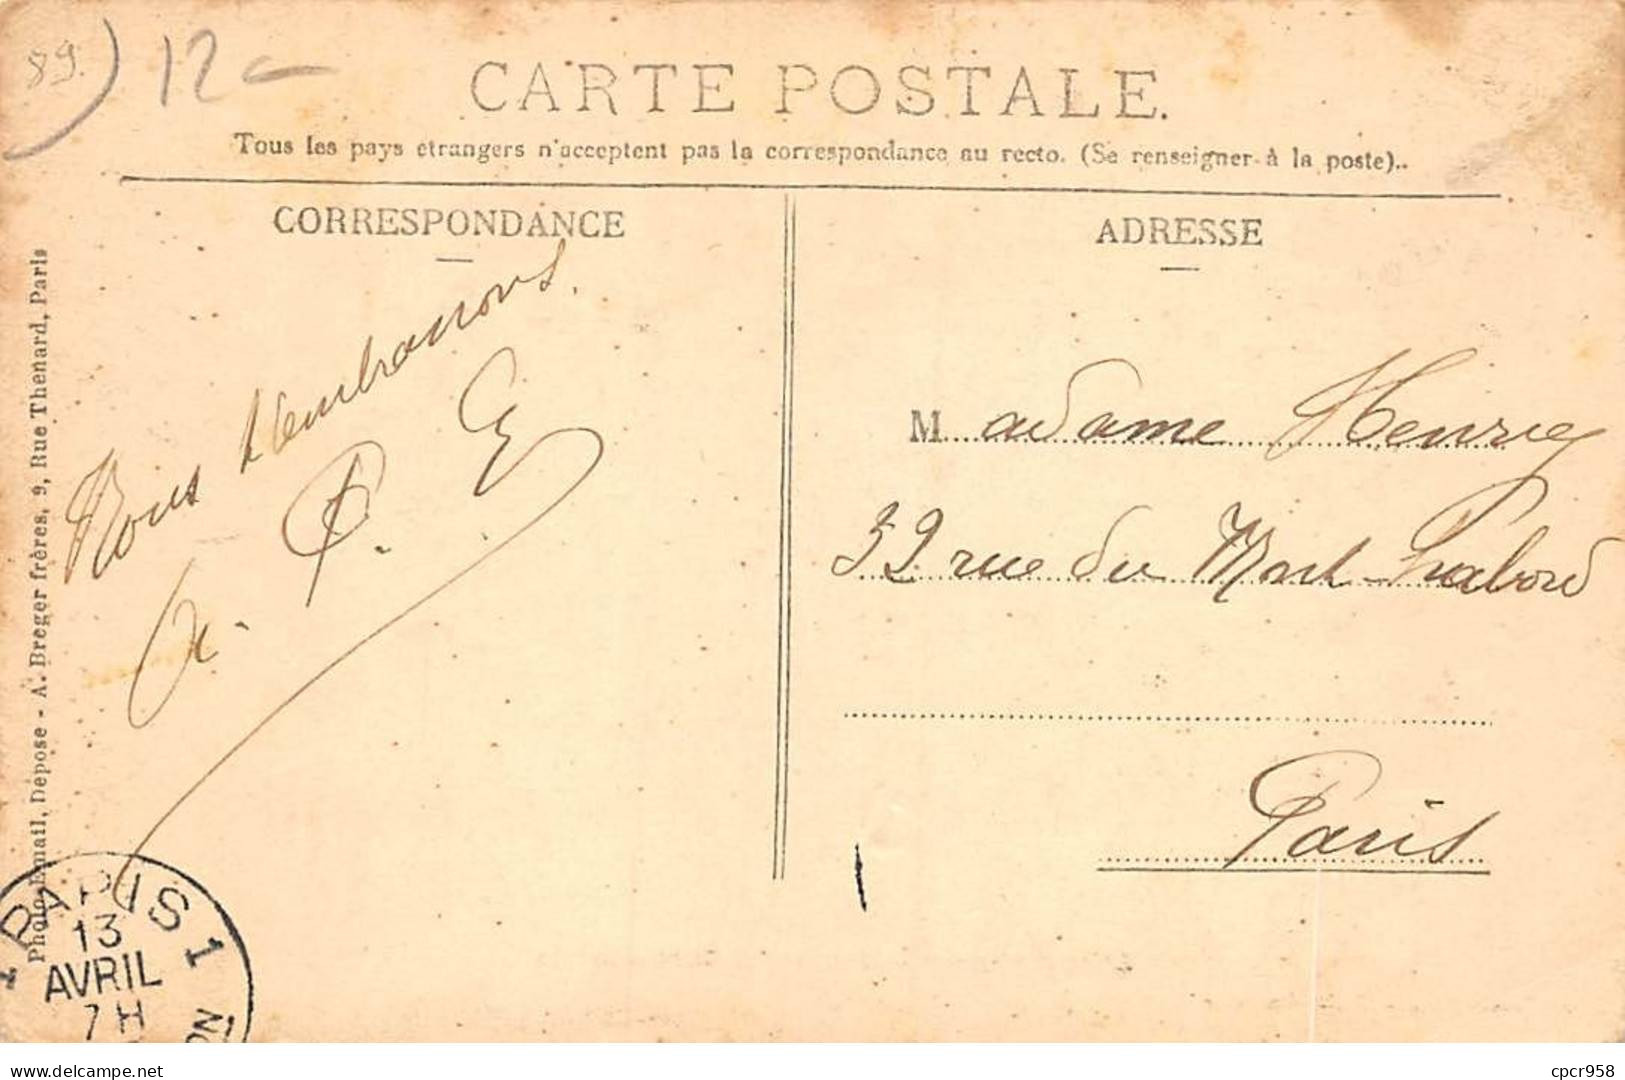 89.
12 -
CARTE POSTALE.
Tous les pays etrangers n'acceptent pas la correspondance au recto. (Se renseigner à la poste)..
CORRESPONDANCE
Nous t'embrassons.
P. E
ADRESSE
Madame Henry
32 rue du Mont-Thabord
Paris
Photo-Email, Déposé - A. Breger frères, 9, Rue Thenard, Paris
PARIS 1
13
AVRIL
7H
delcampe.net
cpcr958